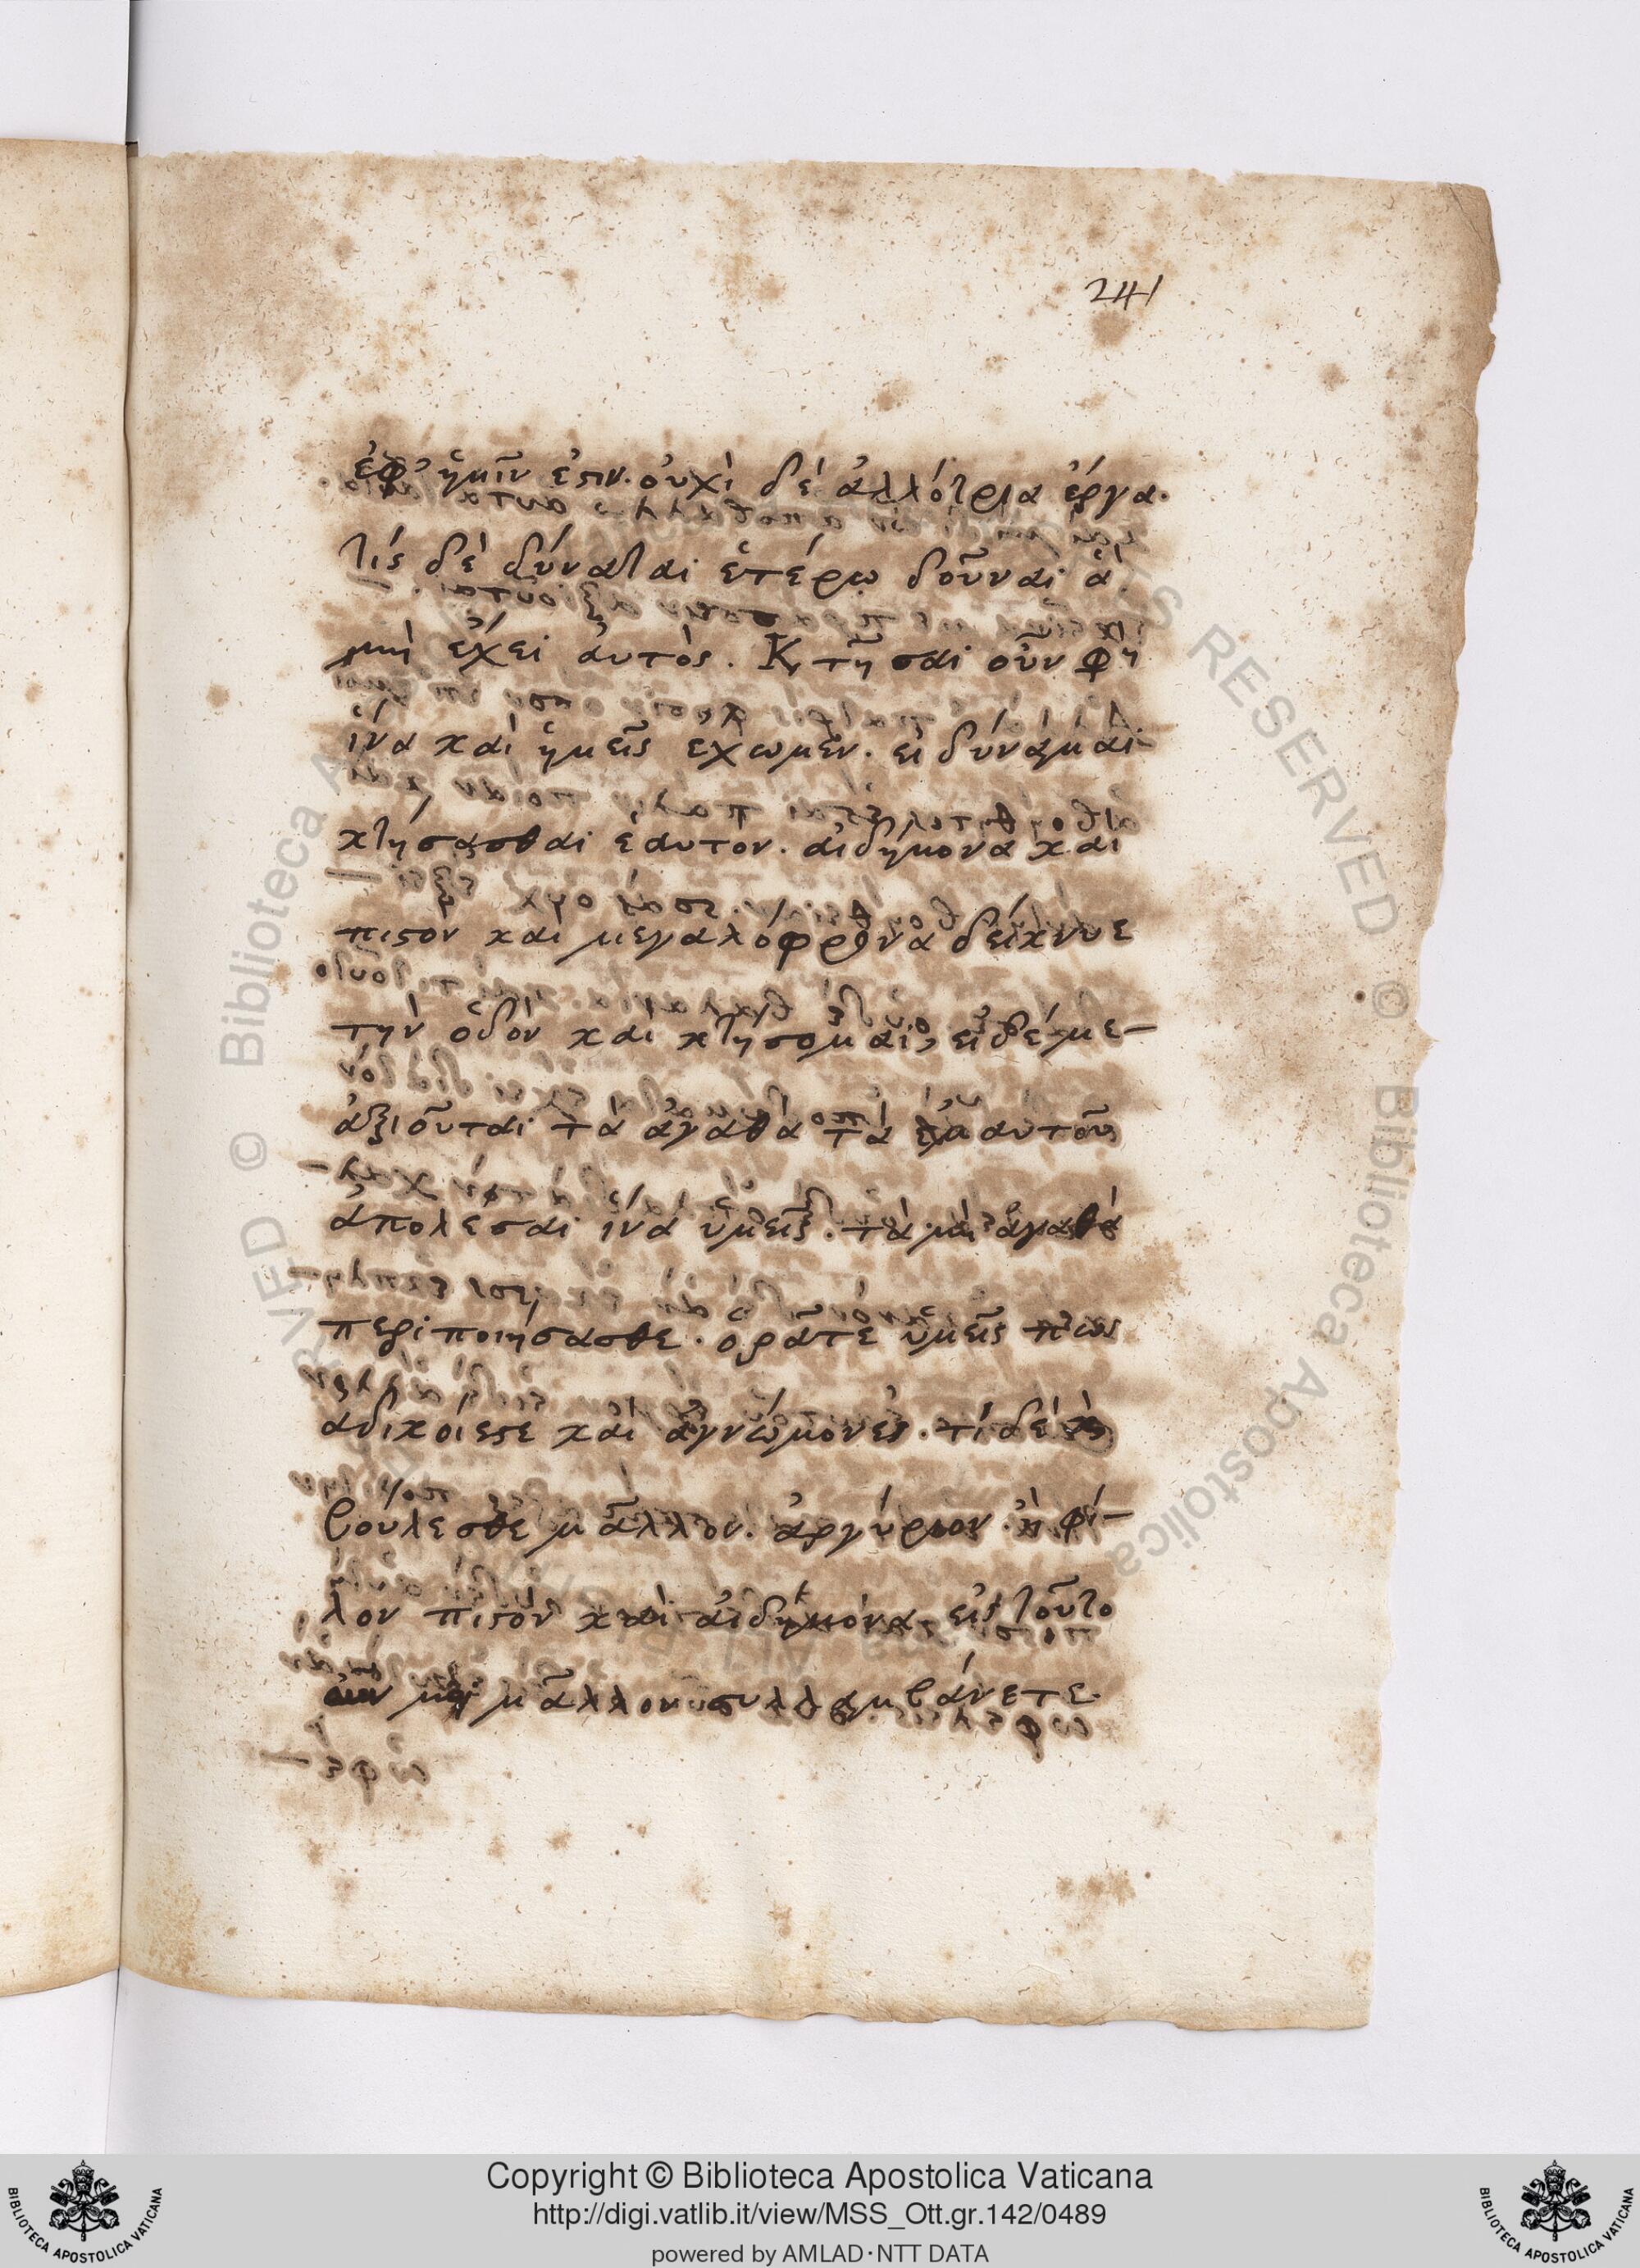 241
ἐφ' ἡμῖν ἐστιν. οὐχὶ δὲ ἀλλότρια ἔργα.
τίς δὲ δύναται ἑτέρῳ δοῦναι ἃ
μὴ ἔχει ἀυτὸς. Κτῆσαι οὖν φη
ἵνα καὶ ἡμεῖς ἔχωμεν. εἰ δύναμαι
κτήσασθαι ἑαυτὸν. αἰδήμονα καὶ
πιστον και μεγαλόφρονα δείκνυε
τὴν ὁδὸν καὶ κτήσομαι, εἰ δέ με-
ἀξιοῦται τὰ ἀγαθὰ τὰ ἐμαυτοῦ
ἀπολέσαι ἵνα ὑμεῖς. τὰ μὴ ἀγαθὰ
περιποιήσασθε. ὁρᾶτε ὑμεῖς πῶς
ἄδικοί εστε καὶ ἀγνώμονες. τί δὲ καὶ
βούλεσθε μᾶλλον. ἀργύριον. ἢ φί-
λον πιστὸν καὶ αἰδήμονα, εἰς τοῦτο
οὖν μοι μᾶλλον συλλαμβάνετε.
Copyright © Biblioteca Apostolica Vaticana
http://digi.vatlib.it/view/MSS_Ott.gr.142/0489
powered by AMLAD·NTT DATA
BIBLIOTECA APOSTOLICA VATICANA
BIBLIOTECA APOSTOLICA VATICANA